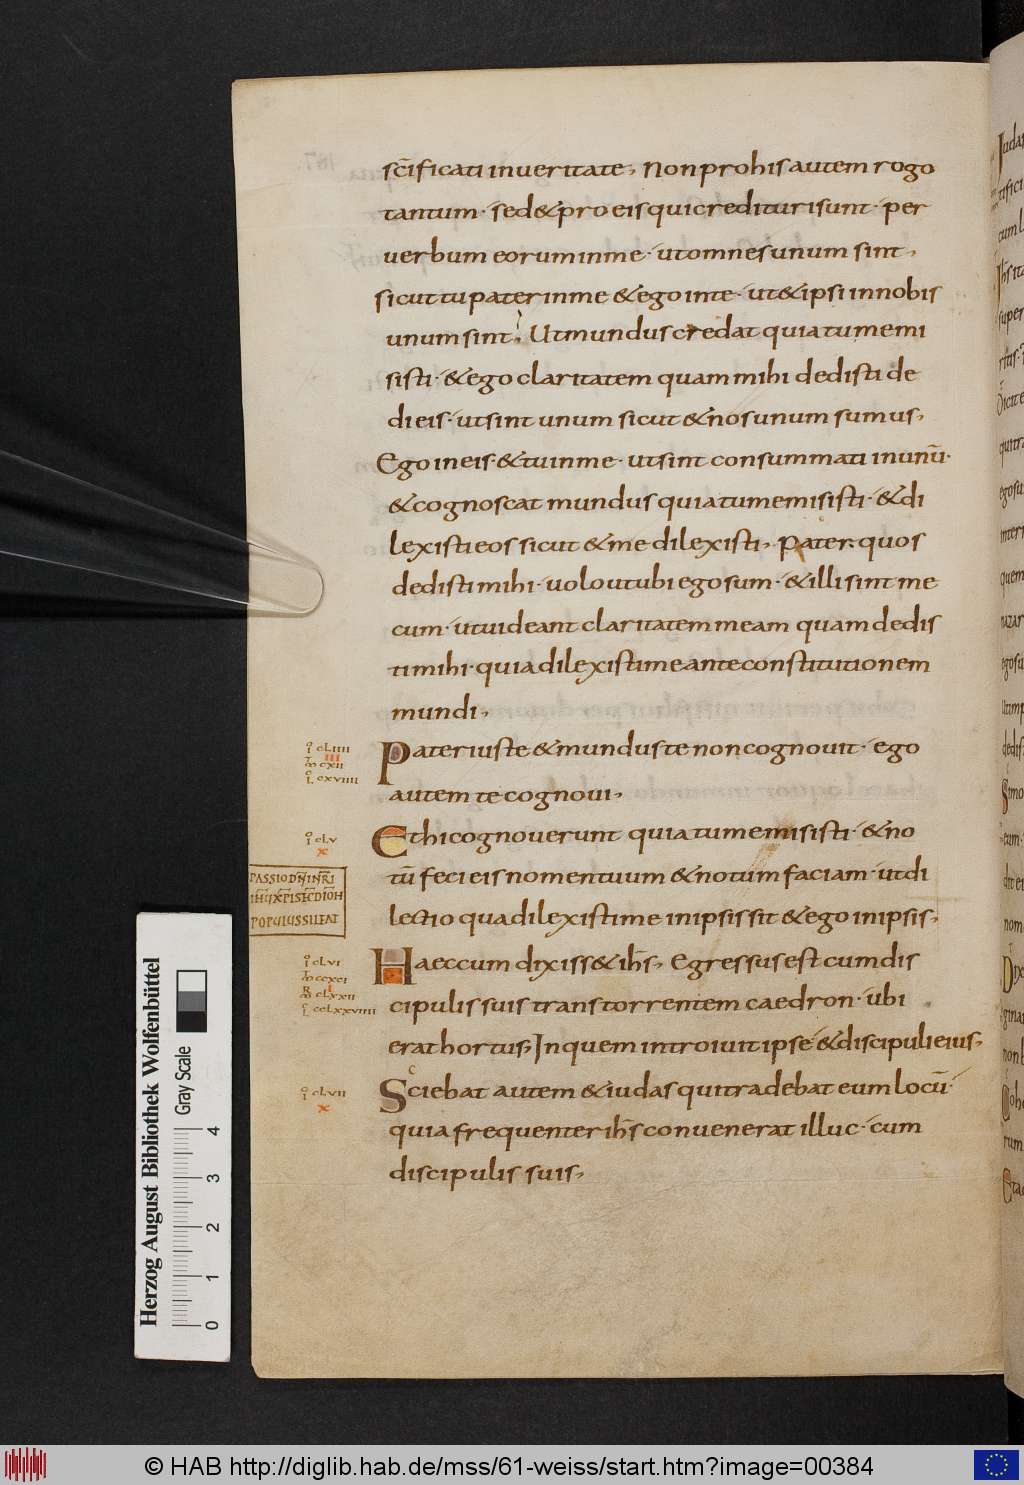 sc̄ificati in ueritate, Non pro his autem rogo
tantum· sed & pro eis qui credituri sunt· per
uerbum eorum in me· ut omnes unum sint,
sicut tu pater in me & ego in te· ut & ipsi in nobis
unum sint, Ut mundus credat quia tu me mi
sisti· & ego claritatem quam mihi dedisti de
di eis· ut sint unum sicut & nos unum sumus,
Ego in eis· & tu in me· ut sint consummati in unū·
& cognoscat mundus quia tu me misisti· & di
lexisti eos sicut & me dilexisti, Pater· quos
dedisti mihi· uolo ut ubi ego sum· & illi sint me
cum· ut uideant claritatem meam quam dedis
ti mihi· quia dilexisti me ante constitutionem
mundi,
Pater iuste & mundus te non cognouit· ego
autem te cognoui,
Et hi cognouerunt quia tu me misisti· & no
tū feci eis nomen tuum & notum faciam· ut di
lectio qua dilexisti me in ipsis sit & ego in ipsis,
Haec cum dixiss& ih̄s, Egressus est cum dis
cipulis suis trans torrentem caedron· ubi
erat hortus, In quem introiuit ipse & discipuli eius,
Sciebat autem & iudas qui tradebat eum locū·
quia frequenter ih̄s conuenerat illuc· cum
discipulis suis,
CLIIII
III
CXII
CXVIIII
CLV
X
PASSIO DN̄I NR̄I
POPULUS SILEAT
CLVI
CCXCI
I
CLXXII
CCLXXVIIII
CLVII
X
Herzog August Bibliothek Wolfenbüttel
Gray Scale
0 1 2 3 4
© HAB http://diglib.hab.de/mss/61-weiss/start.htm?image=00384